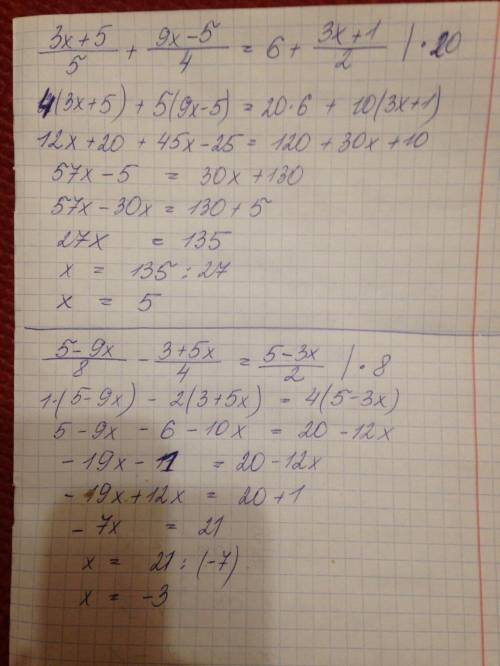 (3x+5)/5 + (9x-5)/4 = 6 + (3x+1)/2 | · 20
4(3x+5) + 5(9x-5) = 20·6 + 10(3x+1)
12x+20 + 45x-25 = 120 + 30x + 10
57x - 5 = 30x + 130
57x - 30x = 130 + 5
27x = 135
x = 135 : 27
x = 5
(5-9x)/8 - (3+5x)/4 = (5-3x)/2 | · 8
1·(5-9x) - 2(3+5x) = 4(5-3x)
5 - 9x - 6 - 10x = 20 - 12x
-19x - 1 = 20 - 12x
-19x + 12x = 20 + 1
-7x = 21
x = 21 : (-7)
x = -3